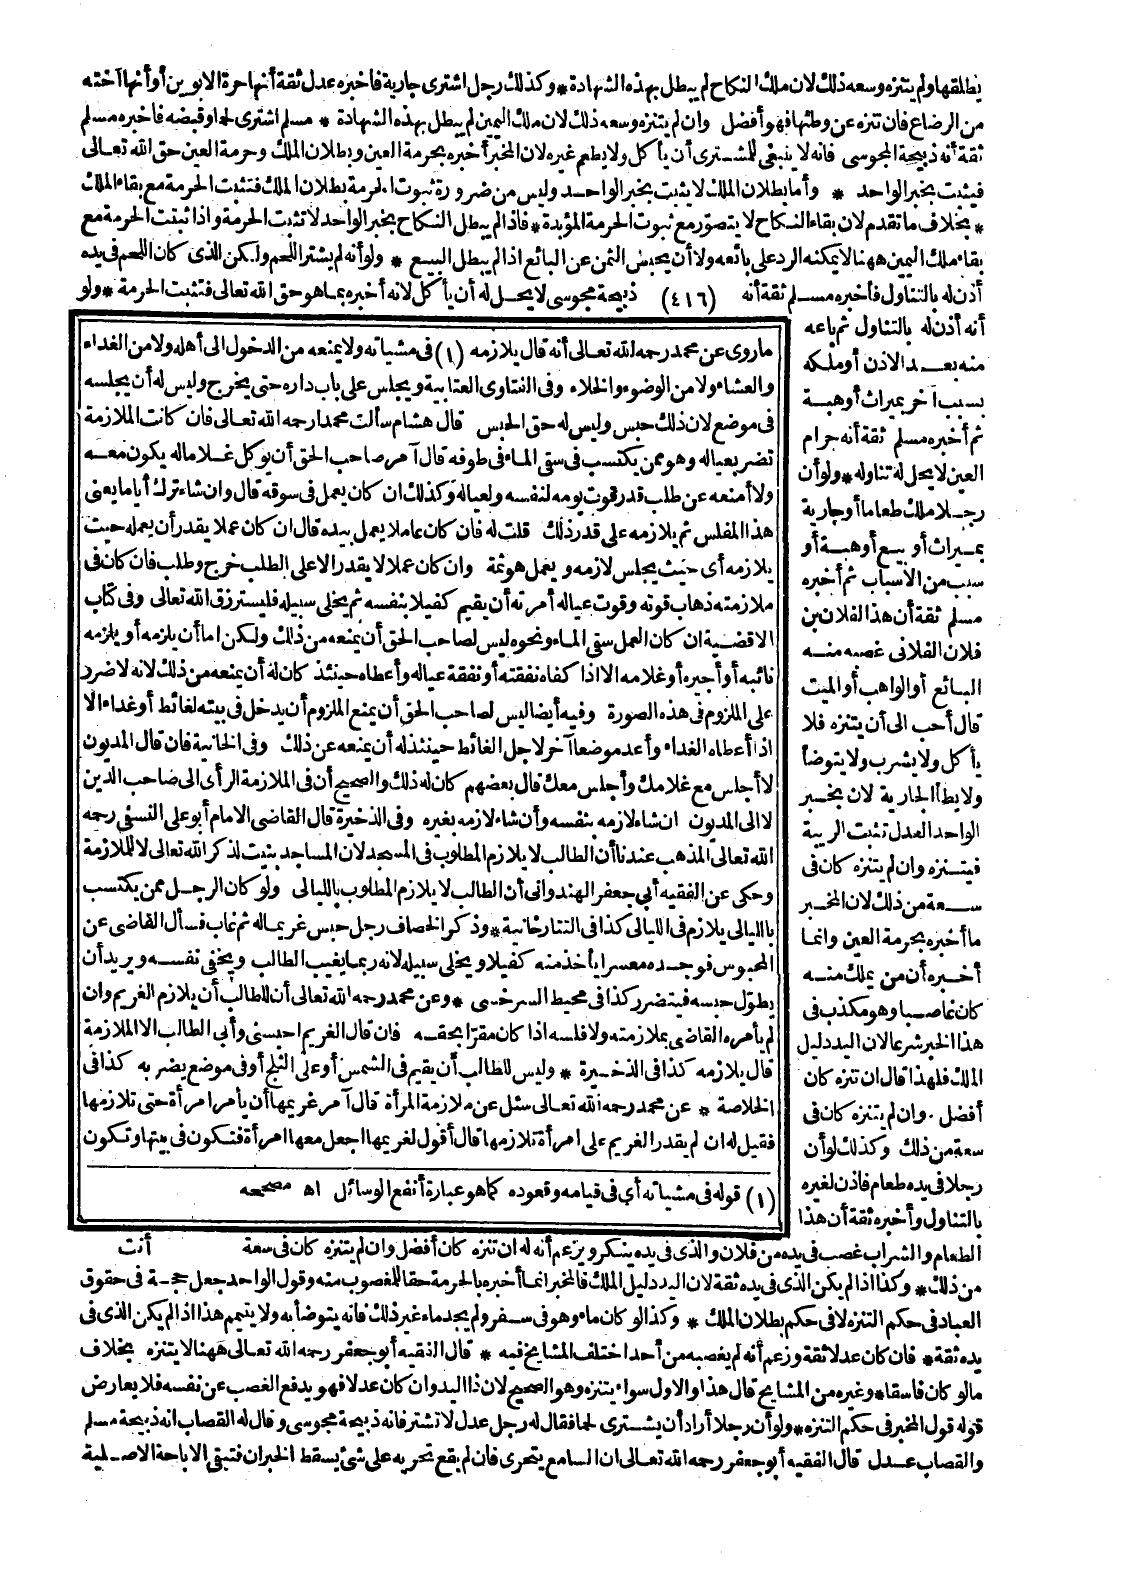 يطلقها ولم يتنزه وسعه ذلك لان ملك النكاح لم يبطل بهذه الشهادة * وكذلك رجل اشترى جارية فاخبره عدل ثقة أنها حرة الابوين أو أنها اخته
من الرضاع فان تنزه عن وطئها فهو أفضل وان لم يتنزه وسعه ذلك لان ملك اليمين لم يبطل بهذه الشهادة * مسلم اشترى لحما وقبضه فاخبره مسلم
ثقة أنه ذبيحة المجوسى فانه لا ينبغى للمشترى أن يأكل ولا يطعم غيره لان المخبر أخبره بحرمة العين وبطلان الملك وحرمة العين حق الله تعالى
فيثبت بخبر الواحد * وأما بطلان الملك لا يثبت بخبر الواحد وليس من ضرورة ثبوت الحرمة بطلان الملك فتثبت الحرمة مع بقاء الملك
* بخلاف ما تقدم لان بقاء النكاح لا يتصور مع ثبوت الحرمة المؤبدة * فاذا لم يبطل النكاح بخبر الواحد لا تثبت الحرمة واذا ثبتت الحرمة مع
بقاء ملك اليمين ههنا لا يمكنه الرد على بائعه ولا أن يحبس الثمن عن البائع اذا لم يبطل البيع * ولو أنه لم يشتر اللحم ولكن الذى كان اللحم فى يده
أذن له بالتناول فأخبره مسلم ثقة أنه (٤١٦) ذبيحة مجوسى لا يحل له أن يأكل لانه أخبره بما هو حق الله تعالى فتثبت الحرمة * ولو
أنه أذن له بالتناول ثم باعه
منه بعد الاذن أو ملكه
بسبب آخر بميراث أو هبة
ثم أخبره مسلم ثقة أنه حرام
العين لا يحل له تناوله * ولو أن
رجلا ملك طعاما أو جارية
بميراث أو بيع أو هبة أو
سبب من الاسباب ثم أخبره
مسلم ثقة أن هذا الفلان بن
فلان الفلانى غصبه منه
البائع أو الواهب أو الميت
قال أحب الى أن يتنزه فلا
يأكل ولا يشرب ولا يتوضأ
ولا يطأ الجارية لان بخبر
الواحد العدل تثبت الريبة
فيتنزه وان لم يتنزه كان فى
سعة من ذلك لان المخبر
ما أخبره بحرمة العين وانما
أخبره أن من يملك منه
كان غاصبا وهو مكذب فى
هذا الخبر شرعا لان اليد دليل
الملك فلهذا قال ان تنزه كان
أفضل وان لم يتنزه كان فى
سعة من ذلك وكذلك لو أن
رجلا فى يده طعام فاذن لغيره
بالتناول وأخبره ثقة أن هذا
الطعام والشراب غصب فى يده من فلان والذى فى يده ينكر ويزعم أنه له ان تنزه كان أفضل وان لم يتنزه كان فى سعة
من ذلك * وكذا اذا لم يكن الذى فى يده ثقة لان اليد دليل الملك فالمخبر انما أخبره بالحرمة حقا للمغصوب منه وقول الواحد جعل حجة فى حقوق
العباد فى حكم التنزه لا فى حكم بطلان الملك * وكذا لو كان ماء وهو فى سفر ولم يجد ماء غير ذلك فانه يتوضأ به ولا يتيمم هذا اذا لم يكن الذى فى
يده ثقة * فان كان عدلا ثقة وزعم أنه لم يغصبه من أحد اختلف المشايخ فيه * قال الفقيه أبو جعفر رحمه الله تعالى ههنا لا يتنزه بخلاف
ما لو كان فاسقا * وغيره من المشايخ قال هذا والاول سواء يتنزه وهو الصحيح لان ذا اليد وان كان عدلا فهو يدفع الغصب عن نفسه فلا يعارض
قوله قول المخبر فى حكم التنزه * ولو أن رجلا أراد أن يشترى لحما فقال له رجل عدل لا تشتر فانه ذبيحة مجوسى وقال له القصاب انه ذبيحة مسلم
والقصاب عدل قال الفقيه أبو جعفر رحمه الله تعالى ان السامع يتحرى فان لم يقع تحريه على شئ يسقط الخبران فتبقى الاباحة الاصلية
ما روى عن محمد رحمه الله تعالى أنه قال يلازمه (١) فى مشياته ولا يمنعه من الدخول الى أهله ولا من الغداء
والعشاء ولا من الوضوء والخلاء وفى الفتاوى العتابية ويجلس على باب داره حتى يخرج وليس له أن يجلسه
فى موضع لان ذلك حبس وليس له حق الحبس قال هشام سألت محمدا رحمه الله تعالى فان كانت الملازمة
تضر بعياله وهو ممن يكتسب فى سقى الماء فى طوفه قال آمر صاحب الحق أن يوكل غلاما له يكون معه
ولا أمنعه عن طلب قدر قوت يومه لنفسه ولعياله وكذلك ان كان يعمل فى سوقه قال وان شاء ترك أياما يعنى
هذا المفلس ثم يلازمه على قدر ذلك قلت له فان كان عاملا يعمل بيده قال ان كان عملا يقدر أن يعمله حيث
يلازمه أى حيث يجلس لازمه ويعمل هو ثمة وان كان عملا لا يقدر الا على الطلب خرج وطلب فان كان فى
ملازمته ذهاب قوته وقوت عياله أمرته أن يقيم كفيلا بنفسه ثم يخلى سبيله فليسترزق الله تعالى وفى كتاب
الاقضية ان كان العمل سقى الماء ونحوه ليس لصاحب الحق أن يمنعه من ذلك ولكن اما أن يلزمه أو يلزمه
نائبه أو أجيره أو غلامه الا اذا كفاه نفقته أو نفقة عياله وأعطاه حينئذ كان له أن يمنعه من ذلك لانه لا ضرر
على الملزوم فى هذه الصورة وفيه أيضا ليس لصاحب الحق أن يمنع الملزوم أن يدخل فى بيته لغائط أو غداء الا
اذا أعطاه الغداء وأعد موضعا آخر لاجل الغائط حينئذ له أن يمنعه عن ذلك وفى الخانية فان قال المديون
لا أجلس مع غلامك وأجلس معك قال بعضهم كان له ذلك والصحيح أن فى الملازمة الرأى الى صاحب الدين
لا الى المديون ان شاء لازمه بنفسه وأن شاء لازمه بغيره وفى الذخيرة قال القاضى الامام أبو على النسفى رحمه
الله تعالى المذهب عندنا أن الطالب لا يلازم المطلوب فى المسجد لان المساجد بنيت لذكر الله تعالى لا للملازمة
وحكى عن الفقيه أبي جعفر الهندوانى أن الطالب لا يلازم المطلوب بالليالى ولو كان الرجل ممن يكتسب
بالليالى يلازم فى الليالى كذا فى التتارخانية * وذكر الخصاف رجل حبس غريما له ثم غاب فسأل القاضى عن
المحبوس فوجده معسرا يأخذ منه كفيلا ويخلى سبيله لانه ربما يغيب الطالب ويخفى نفسه ويريد أن
يطول حبسه فيتضرر كذا فى محيط السرخسى * وعن محمد رحمه الله تعالى أن للطالب أن يلازم الغريم وان
لم يأمره القاضى بملازمته ولا فلسه اذا كان مقرا بحقه فان قال الغريم احبسنى وأبى الطالب الا الملازمة
قال يلازمه كذا فى الذخيرة * وليس للطالب أن يقيم فى الشمس أو على الثلج أو فى موضع يضر به كذا فى
الخلاصة * عن محمد رحمه الله تعالى سئل عن ملازمة المرأة قال آمر غريمها أن يأمر امرأة حتى تلازمها
فقيل له ان لم يقدر الغريم على امرأة تلازمها قال أقول لغريمها اجعل معها امرأة فتكون فى بيتها وتكون
(١) قوله فى مشياته أي فى قيامه وقعوده كما هو عبارة أنفع الوسائل اه مصححه
أنت